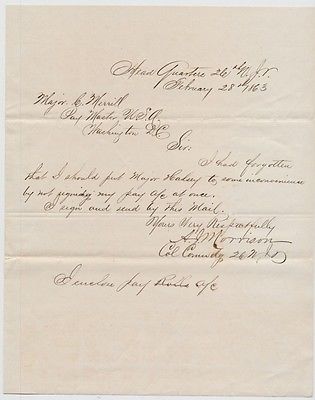 Head Quarters 26th N.J.V.
February 28th 1863
Major C. Merrill
Pay Master U.S.A.
Washington DC
Sir
I had forgotten
that I should put Major to some inconvenience
by not my pay a/c at once.
I sign and send by this Mail.
Yours Very Respectfully
A J Morrison
Col Commdg 26 N.J.V
I enclose pay Rolls a/c